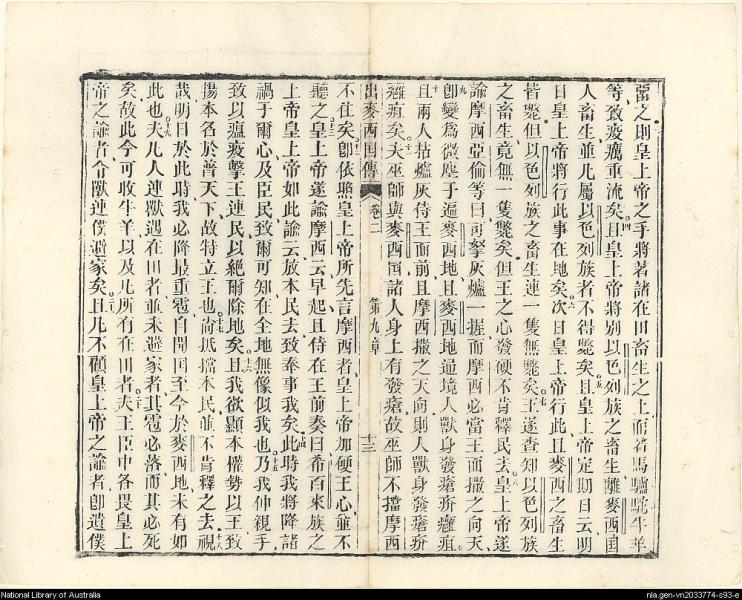 畱之則皇上帝之手將著諸在田畜生之上而若馬驢駝牛羊
等致疫癘重流矣○四且皇上帝將別以色列族之畜生離麥西国
人畜生並凡屬以色列族者不得斃矣○五且皇上帝定期日云明
日皇上帝將行此事在地矣○六次日皇上帝行此且麥西之畜生
皆斃但以色列族之畜生連一隻無斃矣○七王遂查知以色列族
之畜生竟無一隻斃矣但王之心發硬不肯釋民去○八皇上帝遂
諭摩西亞倫等曰可拏灰爐一握而摩西必當王面撒之向天
○九即變為微塵于遍麥西地且麥西地遍境人獸身發瘡疥癰疽
○十且兩人拈爐灰侍王面前且摩西撒之天向則人獸身發瘡疥
癰疽矣○十一夫巫師與麥西国諸人身上有發瘡故巫師不擋摩西
出麥西国傳 卷二 第九章 十三
不住矣○十二即依照皇上帝所先言摩西者皇上帝加硬王心並不
聽之○十三皇上帝遂諭摩西云早起且侍在王前奏曰希百來族之
上帝皇上帝如此諭云放本民去致奉事我矣○十四此時我將降諸
禍于爾心及臣民致爾可知在全地無像似我也○十五乃我伸親手
致以瘟疫擊王連民以絕爾除地矣○十六且我欲顯本權勢以王致
揚本名於普天下故特立王也○十七尚抵擋本民並不肯釋之去○十八視
哉明日於此時我必降最重雹自開国至今於麥西地未有如
此也○十九夫凡人連獸遇在田者並未避家者其雹必落而其必死
矣故此今可收牛羊以及凡所有在田者○二十夫王臣中各畏皇上
帝之諭者令獸連僕避家矣○二一且凡不顧皇上帝之諭者卽遺僕
National Library of Australia
nla.gen-vn2033774-s93-e